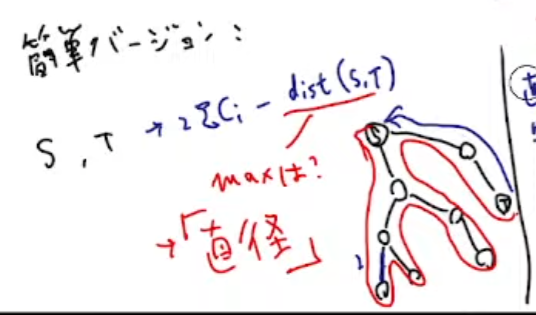 簡単バージョン:
S, T → 2ΣCi - dist(S,T)
maxは?
→「直径」
S
T
2
直